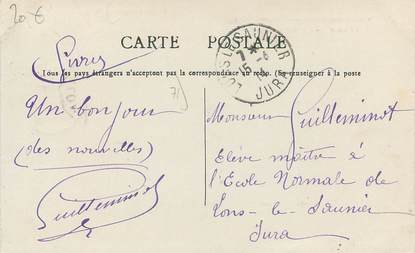 20 €
CARTE POSTALE
Tous les pays étrangers n'acceptent pas la correspondance au recto. (Se renseigner à la poste
LONS-LE-SAUNIER
JURA
Un bonjour
(des nouvelles)
Guilleminot
Monsieur Guilleminot
Elève maître à
l'Ecole Normale de
Lons-le-Saunier
Jura